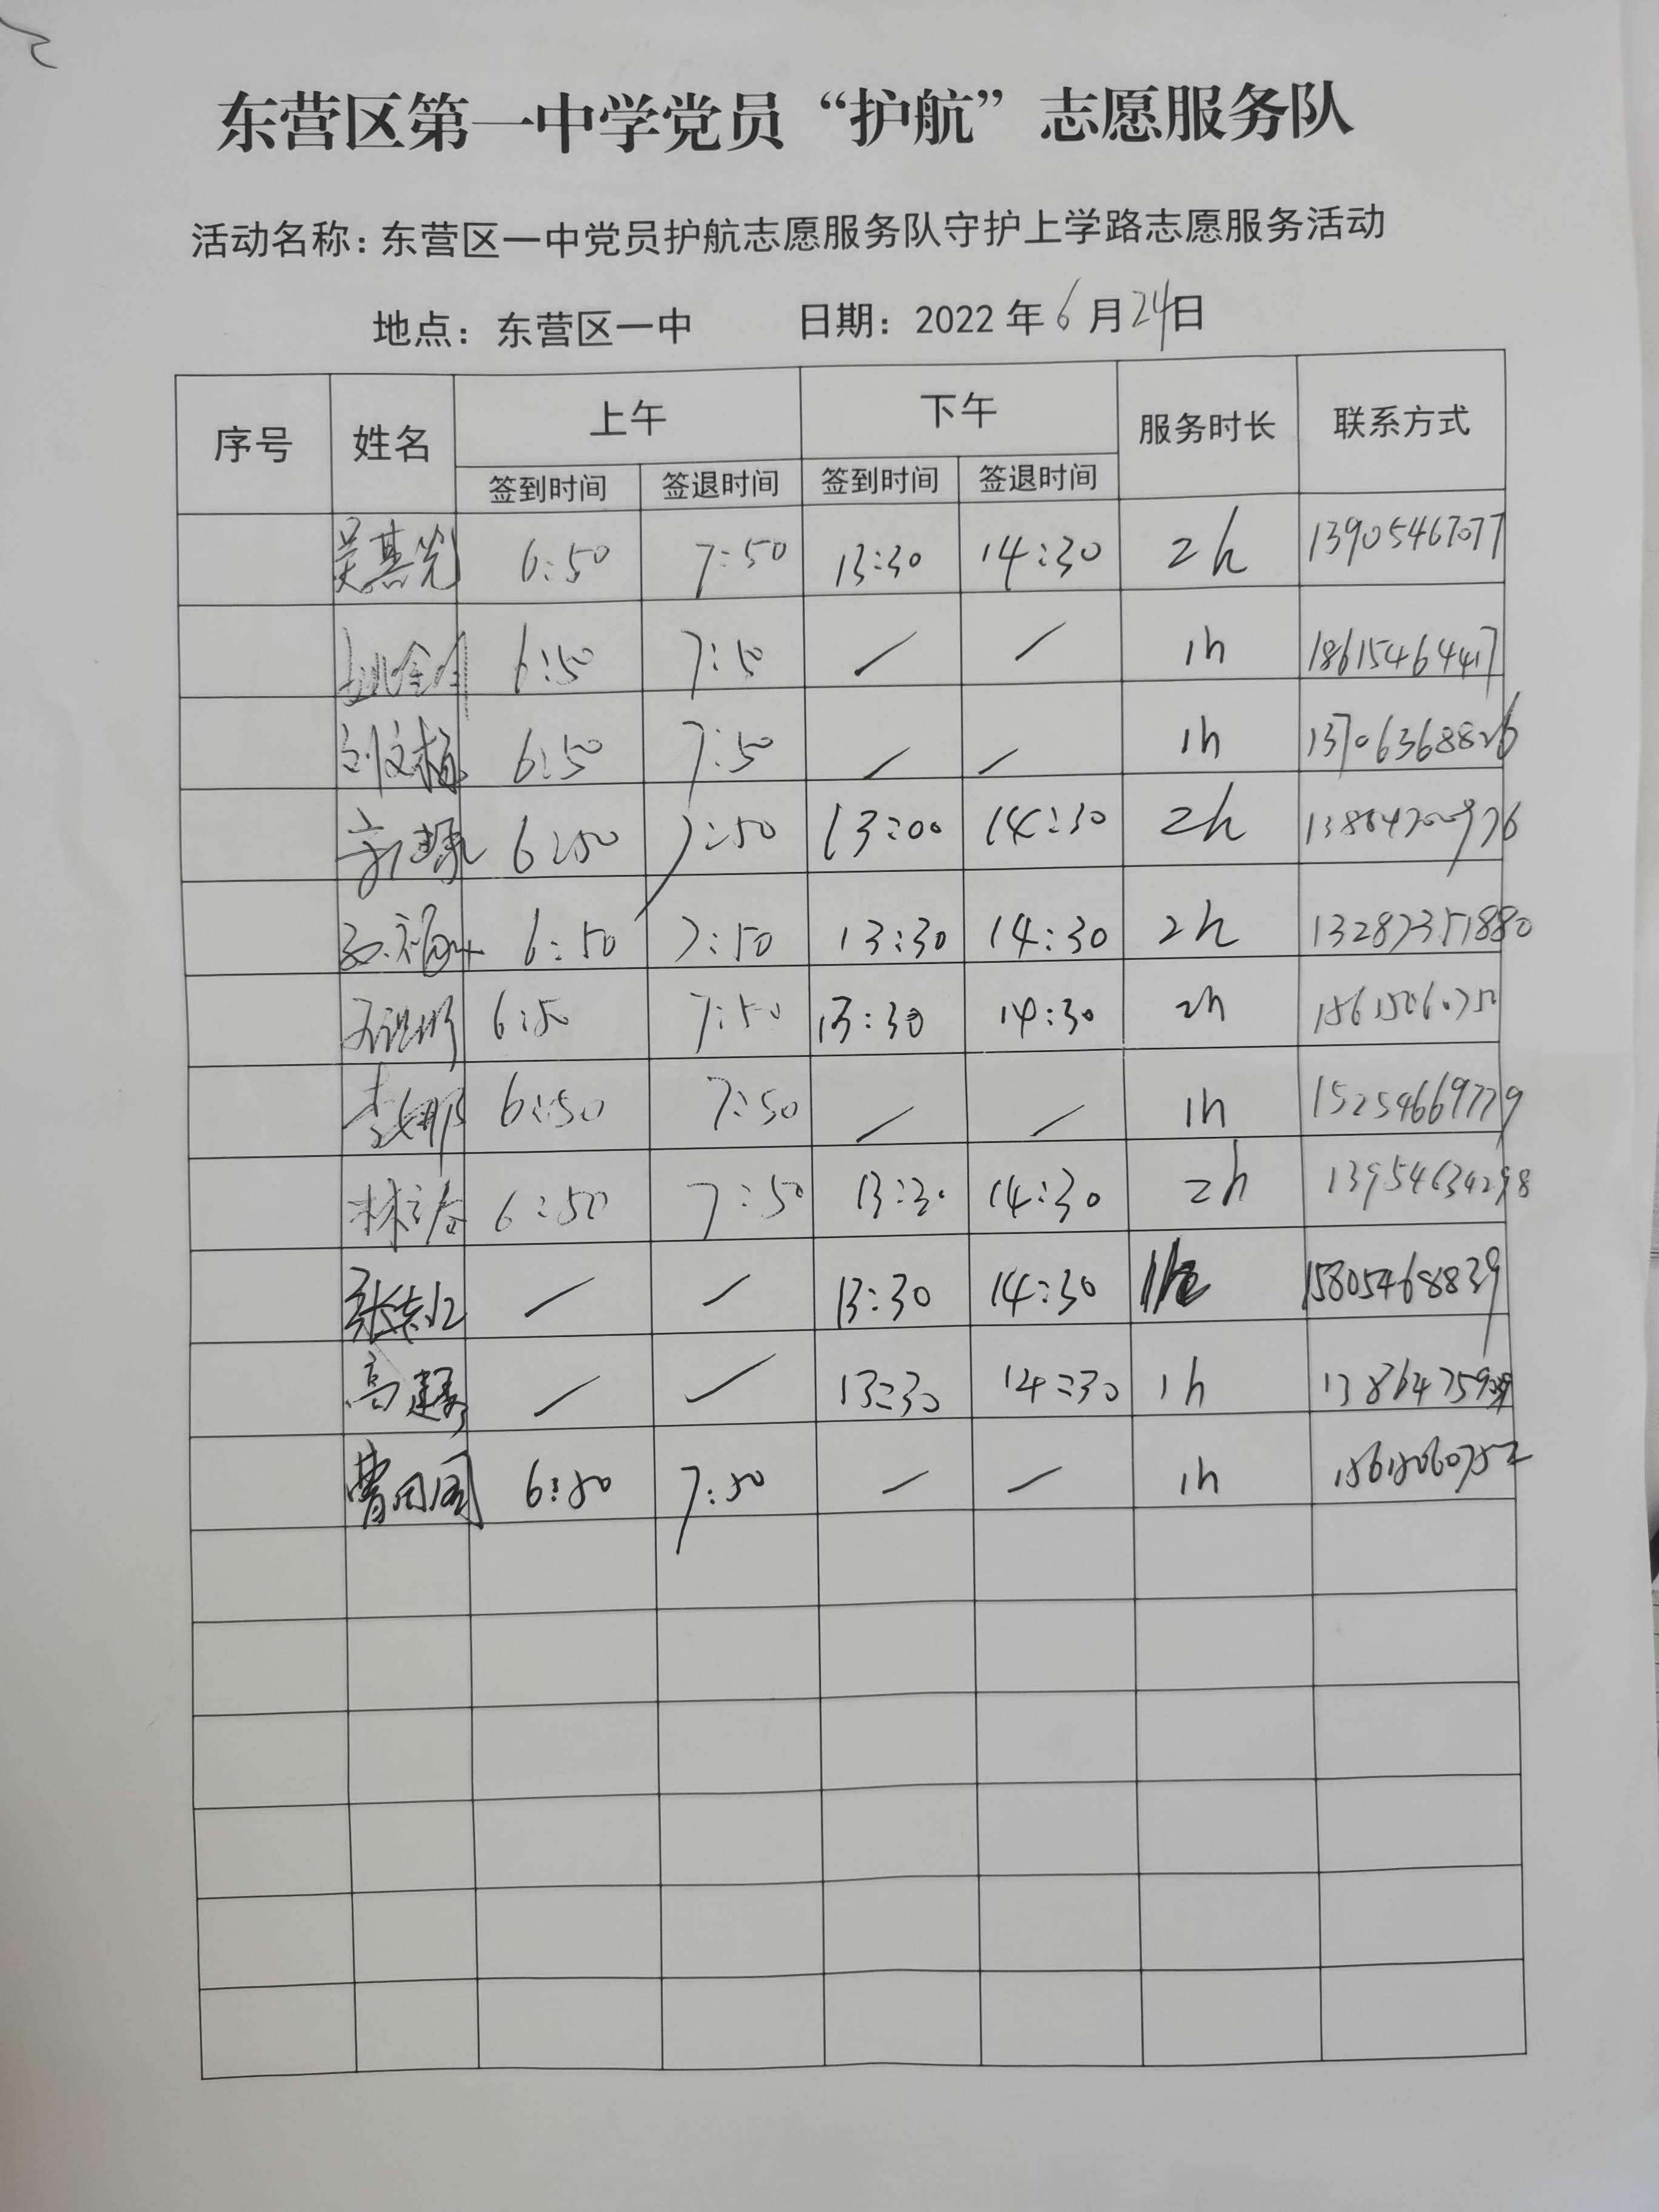 东营区第一中学党员“护航”志愿服务队
活动名称：东营区一中党员护航志愿服务队守护上学路志愿服务活动
地点：东营区一中 日期：2022年6月24日
序号 姓名 上午 下午 服务时长 联系方式
签到时间 签退时间 签到时间 签退时间
6:50 7:50 13:30 14:30 2h 13905467077
6:50 7:50 / / 1h 18615464417
刘文梅 6:50 7:50 / / 1h 13706368826
6:50 7:50 13:00 14:30 2h
6:50 7:50 13:30 14:30 2h 13287351880
6:50 7:50 13:30 14:30 2h
李娜 6:50 7:50 / / 1h 15254669779
6:50 7:50 13:30 14:30 2h 13954634298
/ / 13:30 14:30 15805468839
/ / 13:30 14:30 1h
曹团团 6:50 7:50 / / 1h 15615060752